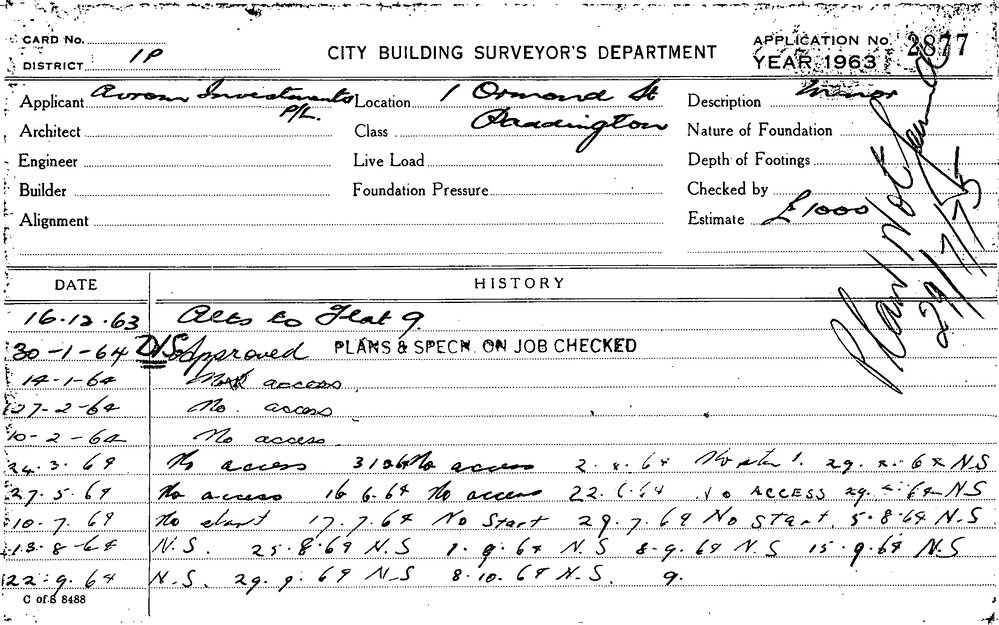 CARD No.
DISTRICT 1P
CITY BUILDING SURVEYOR'S DEPARTMENT
APPLICATION No. 2877
YEAR 1963
Applicant Avrom Investments P/L.
Location 1 Ormond St Paddington
Description Minor
Architect
Class
Nature of Foundation
Engineer
Live Load
Depth of Footings
Builder
Foundation Pressure
Checked by
Alignment
Estimate £1000
Plans Not Found
29/7/75
DATE HISTORY
16.12.63 Alts to Flat 9.
30-1-64 DISApproved PLANS & SPECN. ON JOB CHECKED
14-1-64 access
27-2-64 No. access
10-2-64 No access.
24.3.64 No access No access 2.4.64 No start. 29.4.64 N.S
27.5.64 No access 16.6.64 No access 22.6.64 No ACCESS 29.6.64 N.S
10.7.64 No start 17.7.64 No Start 29.7.64 No Start. 5.8.64 N.S
13.8.64 N.S. 25.8.64 N.S 1.9.64 N.S 8.9.64 N.S 15.9.64 N.S
22.9.64 N.S. 29.9.64 N.S 8.10.64 N.S. 9.
C of S 8488